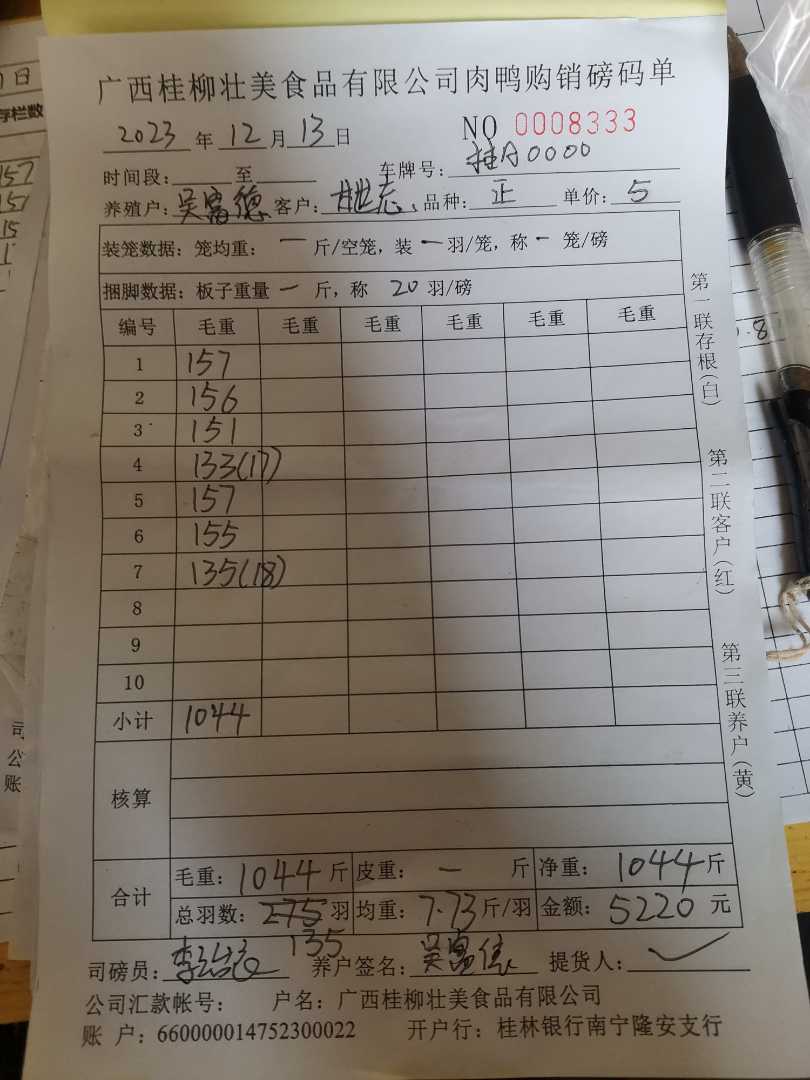 广西桂柳壮美食品有限公司肉鸭购销磅码单
2023 年 12 月 13 日 NO 0008333
时间段: 至 车牌号: 桂A0000
养殖户: 吴富德 客户: 品种: 正 单价: 5
装笼数据: 笼均重: 一 斤/空笼, 装 一 羽/笼, 称 一 笼/磅
捆脚数据: 板子重量 一 斤, 称 20 羽/磅
编号 毛重 毛重 毛重 毛重 毛重 毛重
1 157
2 156
3 151
4 133(17)
5 157
6 155
7 135(18)
8
9
10
小计 1044
核算
合计 毛重: 1044 斤 皮重: 一 斤 净重: 1044 斤
总羽数: 275 羽 均重: 7.73 斤/羽 金额: 5220 元
135
司磅员: 养户签名: 吴富德 提货人:
公司汇款帐号: 户名: 广西桂柳壮美食品有限公司
账 户: 660000014752300022 开户行: 桂林银行南宁隆安支行
第一联存根(白)
第二联客户(红)
第三联养户(黄)
日
存栏数
157
151
15
司
公
账